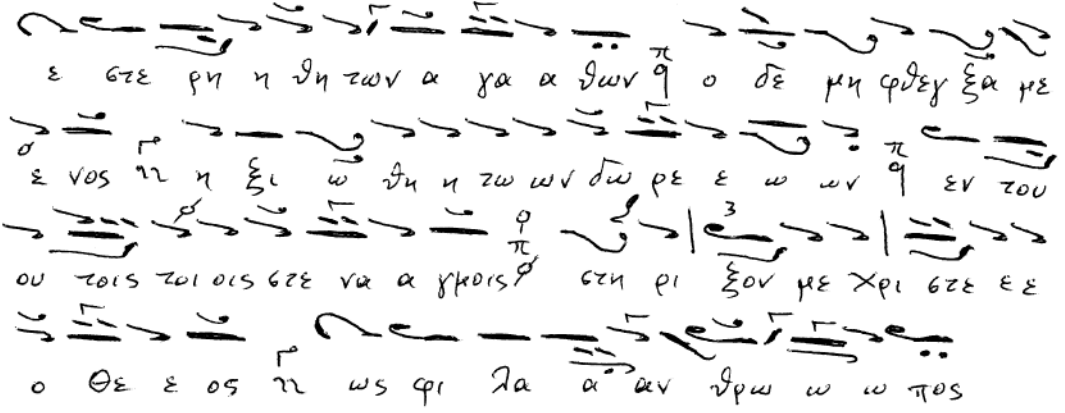 ε στε ρη η θη των α γα α θων π q ο δε μη φθεγ ξα με
ε νος η ξι ω θη η τω ων δω ρε ε ω ων π q εν του
ου τοις τοι οις στε να α γμοις π στη ρι ξον με Χρι στε ε ε
ο Θε ε ος ως φι λα α αν θρω ω ω πος